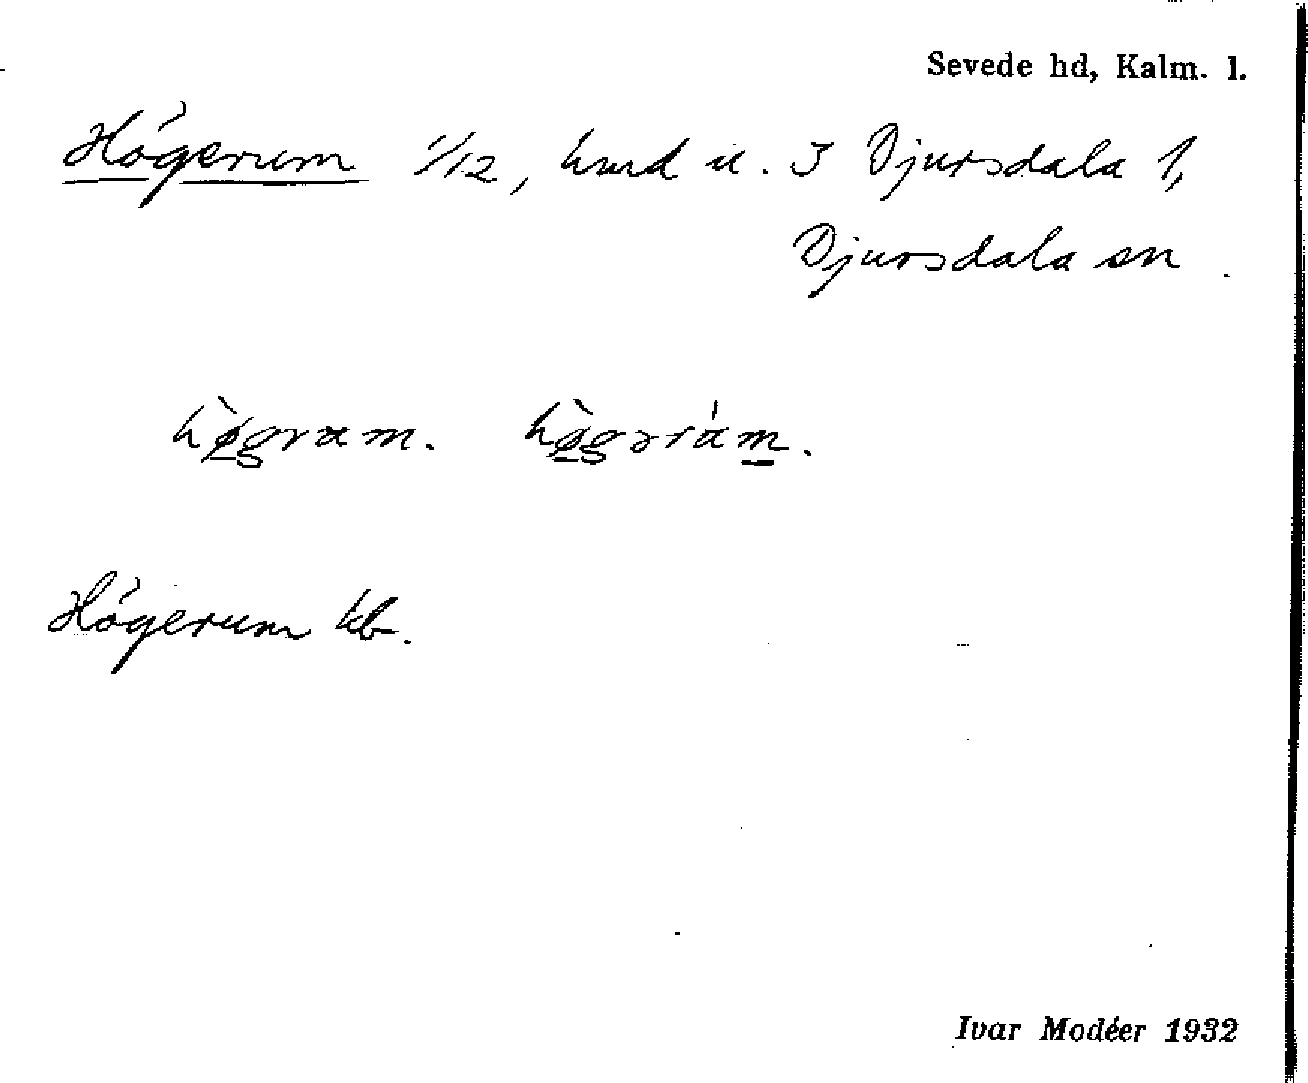 Sevede hd, Kalm. l.
Högerum 1/12, hmd u. 3 Djursdala 1,
Djursdala sn.
hø̀gram. hø̀gərám.
Högerum kb.
Ivar Modéer 1932